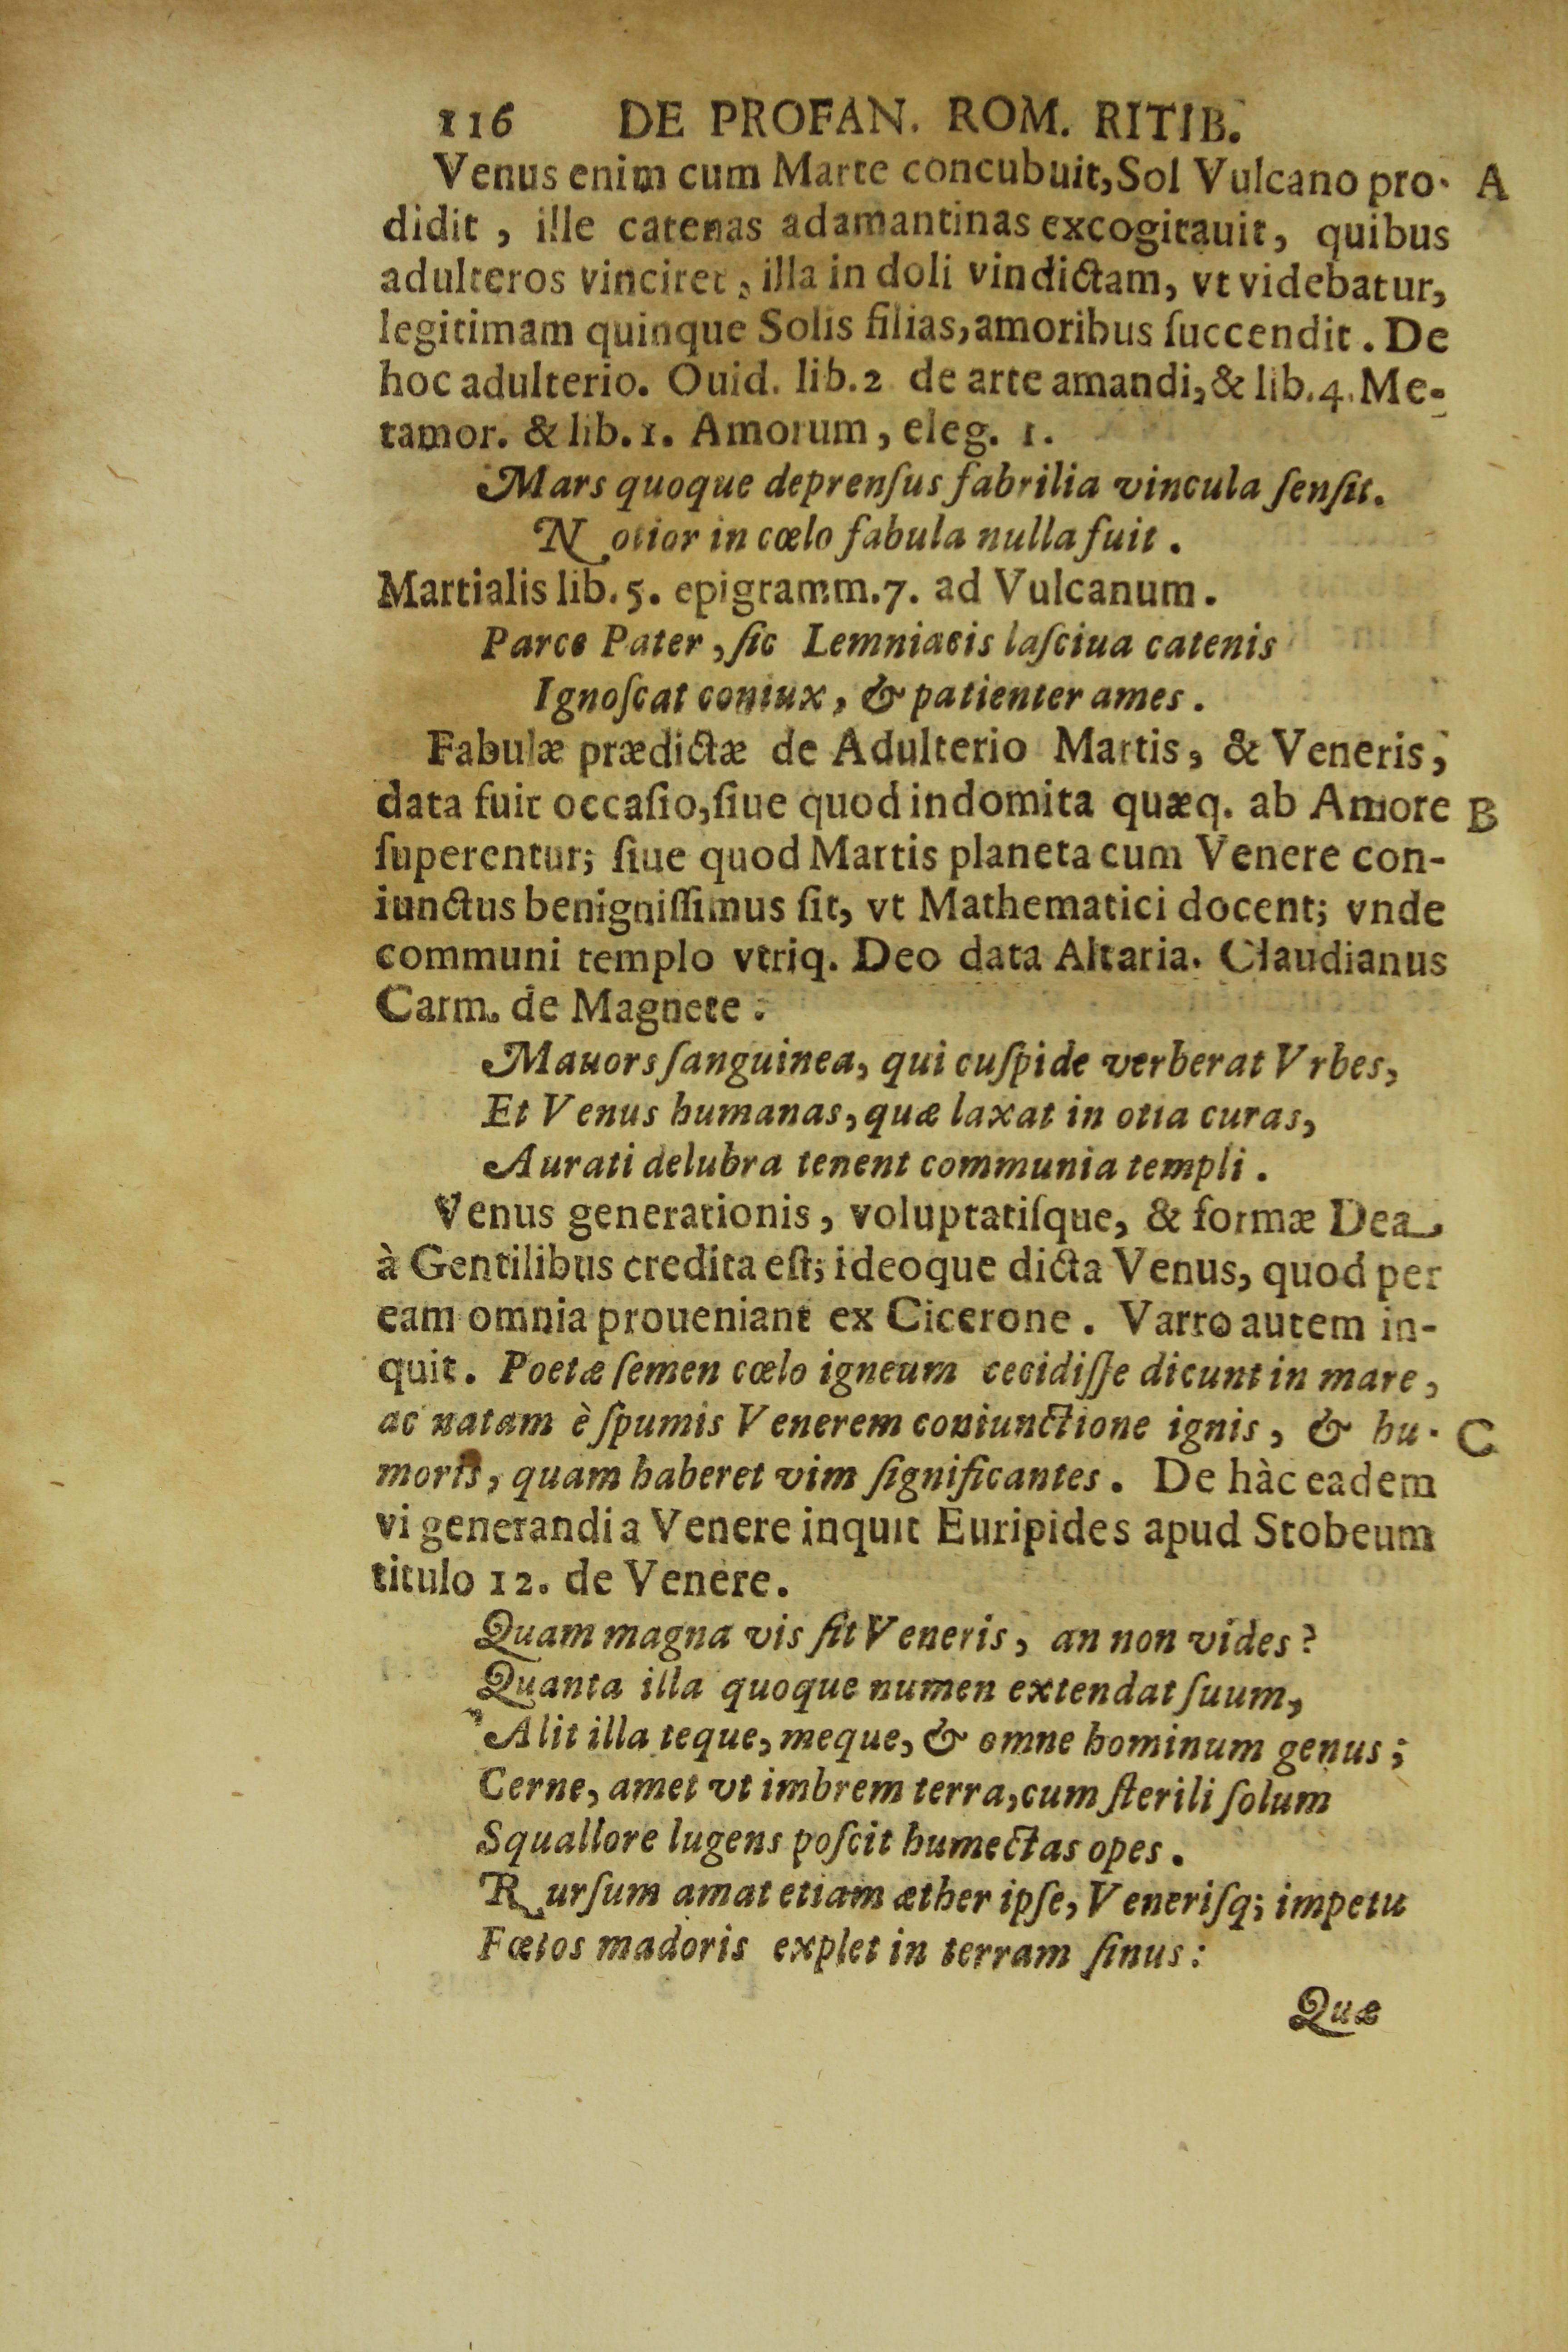 116 DE PROFAN. ROM. RITIB.
Venus enim cum Marte concubuit, Sol Vulcano pro- A
didit, ille catenas adamantinas excogitauit, quibus
adulteros vinciret, illa in doli vindictam, vt videbatur,
legitimam quinque Solis filias, amoribus ſuccendit. De
hoc adulterio. Ouid. lib. 2 de arte amandi, & lib. 4. Me-
tamor. & lib. 1. Amorum, eleg. 1.
Mars quoque deprenſus fabrilia vincula ſenſit.
Notior in cœlo fabula nulla fuit.
Martialis lib. 5. epigramm. 7. ad Vulcanum.
Parce Pater, ſic Lemniacis laſciua catenis
Ignoſcat coniux, & patienter ames.
Fabulæ prædictæ de Adulterio Martis, & Veneris,
data fuit occaſio, ſiue quod indomita quæq. ab Amore B
ſuperentur; ſiue quod Martis planeta cum Venere con-
iunctus benigniſſimus ſit, vt Mathematici docent; vnde
communi templo vtriq. Deo data Altaria. Claudianus
Carm. de Magnete.
Mauors ſanguinea, qui cuſpide verberat Vrbes,
Et Venus humanas, quæ laxat in otia curas,
Aurati delubra tenent communia templi.
Venus generationis, voluptatiſque, & formæ Dea
à Gentilibus credita eſt; ideoque dicta Venus, quod per
eam omnia proueniant ex Cicerone. Varro autem in-
quit. Poetæ ſemen cœlo igneum cecidiſſe dicunt in mare,
ac natam è ſpumis Venerem coniunctione ignis, & hu- C
moris, quam haberet vim ſignificantes. De hàc eadem
vi generandi a Venere inquit Euripides apud Stobeum
titulo 12. de Venere.
Quam magna vis ſit Veneris, an non vides?
Quanta illa quoque numen extendat ſuum,
Alit illa teque, meque, & omne hominum genus;
Cerne, amet vt imbrem terra, cum ſterili ſolum
Squallore lugens poſcit humectas opes.
Rurſum amat etiam æther ipſe, Veneriſq; impetu
Fœtos madoris explet in terram ſinus:
Quæ